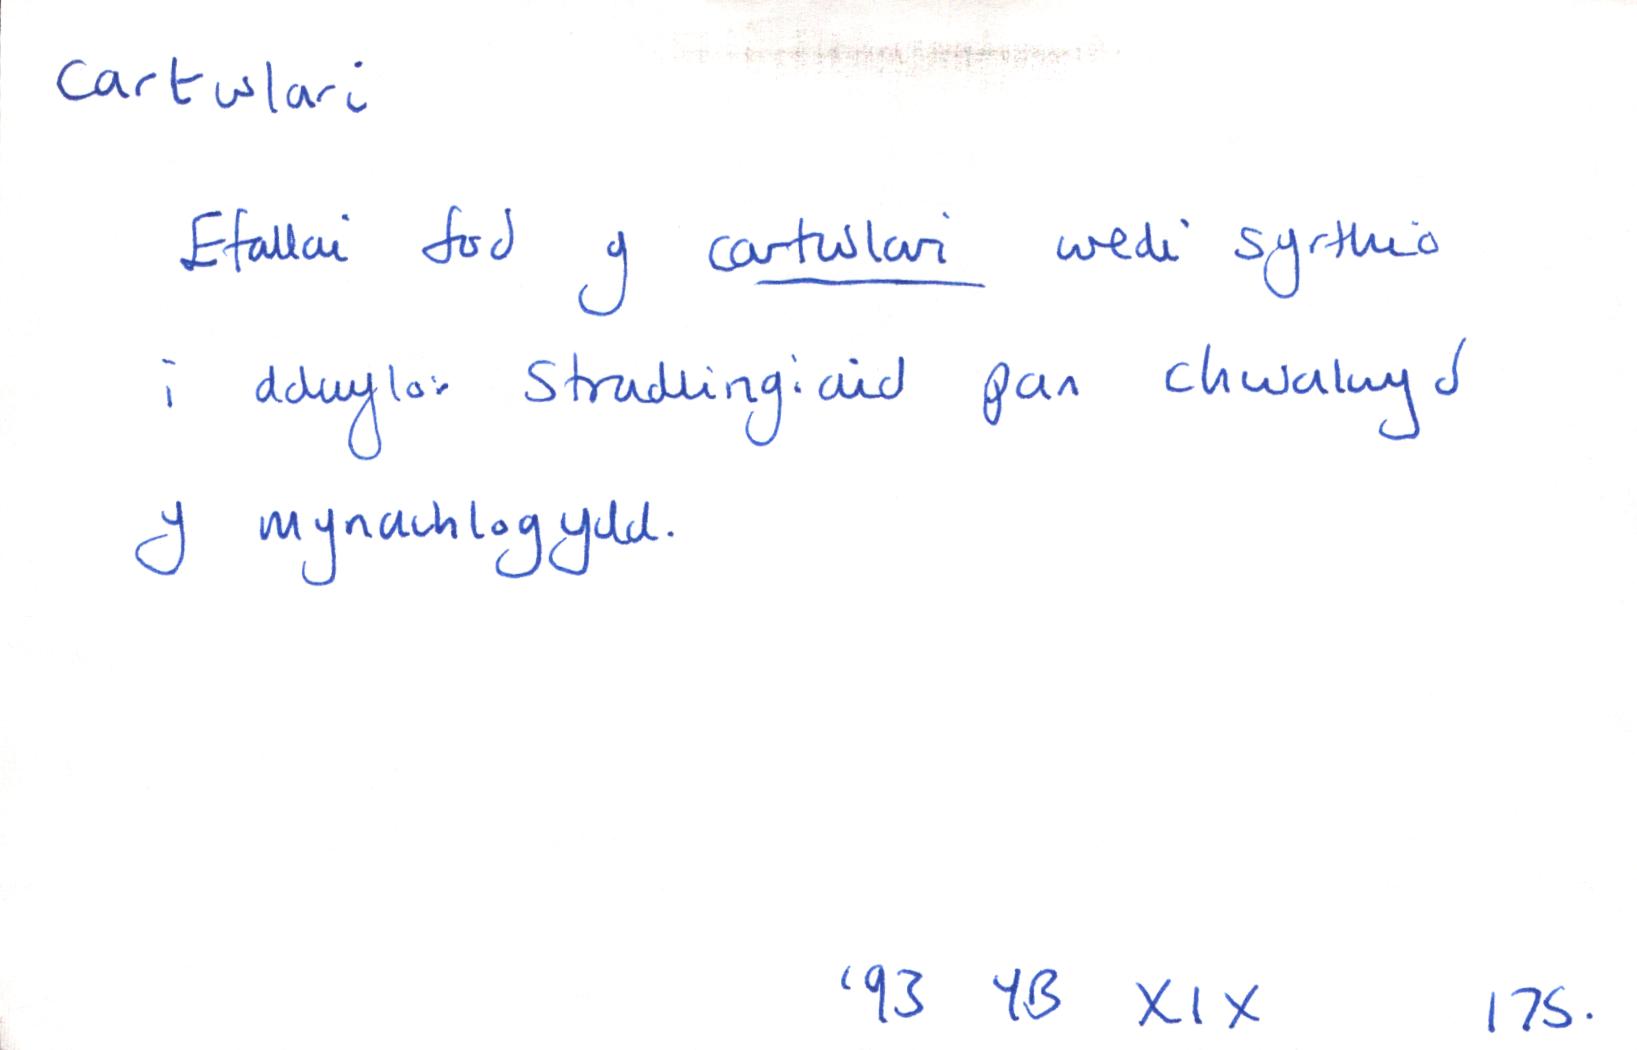 cartwlari
Efallai fod y cartwlari wedi syrthio
i ddwylo'r Stradlingiaid pan chwalwyd
y mynachlogydd.
'93 YB XIX 175.